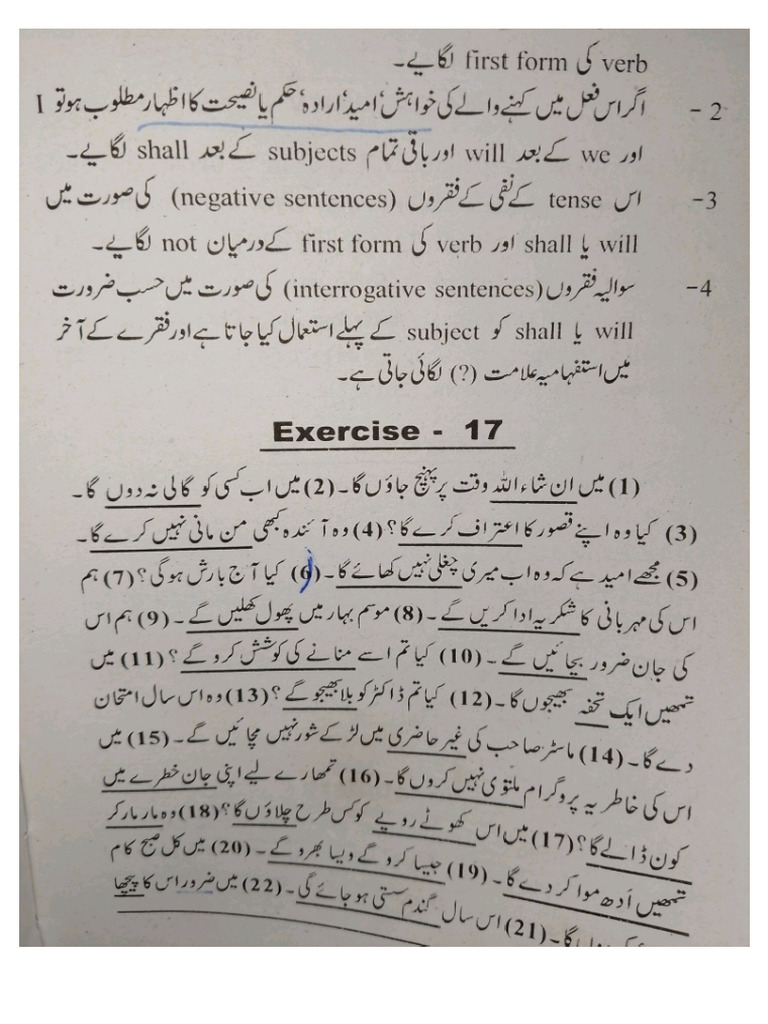 verb کی first form لگایے۔
2- اگر اس فعل میں کہنے والے کی خواہش' امید' ارادہ' حکم یا نصیحت کا اظہار مطلوب ہو تو I
اور we کے بعد will اور باقی تمام subjects کے بعد shall لگایے۔
3- اس tense کے نفی کے فقروں (negative sentences) کی صورت میں
will یا shall اور verb کی first form کے درمیان not لگایے۔
4- سوالیہ فقروں (interrogative sentences) کی صورت میں حسب ضرورت
will یا shall کو subject کے پہلے استعمال کیا جاتا ہے اور فقرے کے آخر
میں استفہامیہ علامت (?) لگائی جاتی ہے۔
Exercise - 17
(1) میں ان شاء اللہ وقت پر پہنچ جاؤں گا۔ (2) میں اب کسی کو گالی نہ دوں گا۔
(3) کیا وہ اپنے قصور کا اعتراف کرے گا؟ (4) وہ آئندہ کبھی من مانی نہیں کرے گا۔
(5) مجھے امید ہے کہ وہ اب میری چغلی نہیں کھائے گا۔ (6) کیا آج بارش ہوگی؟ (7) ہم
اس کی مہربانی کا شکریہ ادا کریں گے۔ (8) موسم بہار میں پھول کھلیں گے۔ (9) ہم اس
کی جان ضرور بچائیں گے۔ (10) کیا تم اسے منانے کی کوشش کرو گے؟ (11) میں
تمھیں ایک تحفہ بھیجوں گا۔ (12) کیا تم ڈاکٹر کو بلا بھیجو گے؟ (13) وہ اس سال امتحان
دے گا۔ (14) ماسٹر صاحب کی غیر حاضری میں لڑکے شور نہیں مچائیں گے۔ (15) میں
اس کی خاطر یہ پروگرام ملتوی نہیں کروں گا۔ (16) تمھارے لیے اپنی جان خطرے میں
کون ڈالے گا؟ (17) میں اس کھوٹے روپے کو کس طرح چلاؤں گا؟ (18) وہ مار مار کر
تمھیں اَدھ موا کر دے گا۔ (19) جیسا کرو گے ویسا بھرو گے۔ (20) میں کل صبح کام
گا۔ (21) اس سال گندم سستی ہو جائے گی۔ (22) میں ضرور اس کا پیچھا